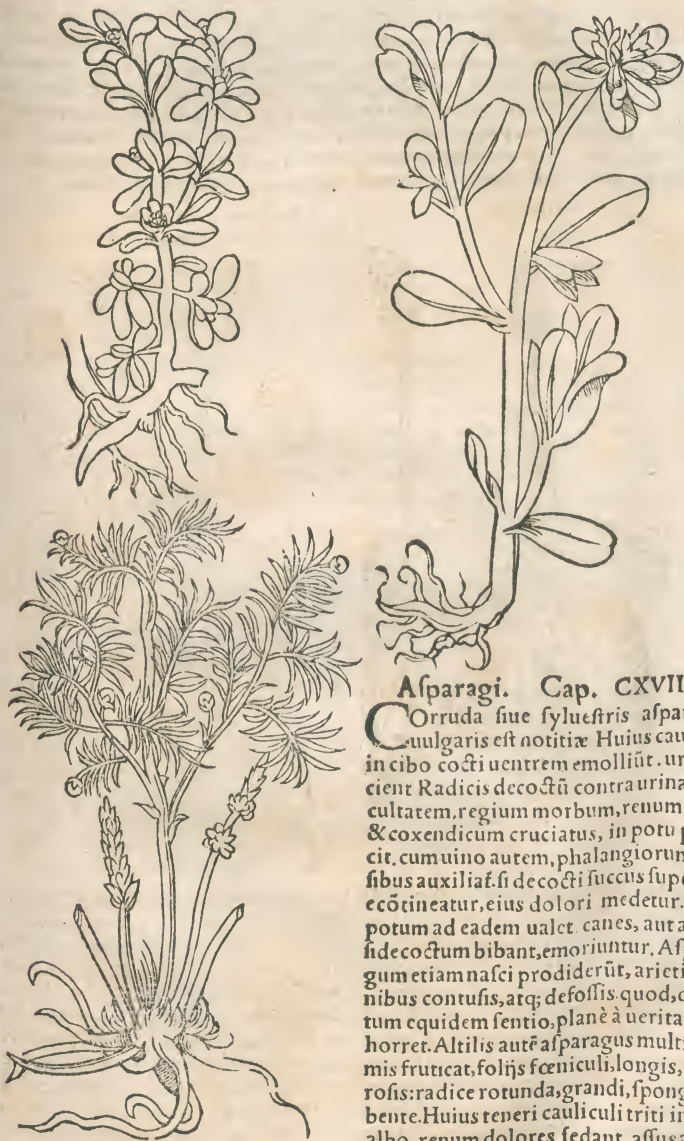 Aſparagi. Cap. CXVII
COrruda ſiue ſylueſtris aſpa
uulgaris eſt notitiæ Huius cau
in cibo cocti uentrem emolliũt. ur
cient Radicis decoctũ contra urina
cultatem, regium morbum, renum
& coxendicum cruciatus, in potu p
cit. cum uino autem, phalangiorum
ſibus auxiliaf. ſi decocti ſuccus ſup
ecõtineatur, eius dolori medetur.
potum ad eadem ualet. canes, aut a
ſi decoctum bibant, emoriuntur. Aſ
gum etiam naſci prodiderũt, arieti
nibus contuſis, atq; defoſſis. quod, q
tum equidem ſentio, planè à uerita
horret. Altilis autẽ aſparagus mult
mis fruticat, folijs fœniculi, longis,
roſis: radice rotunda, grandi, ſpong
bente. Huius teneri cauliculi triti in
albo, renum dolores ſedant. aſſus a